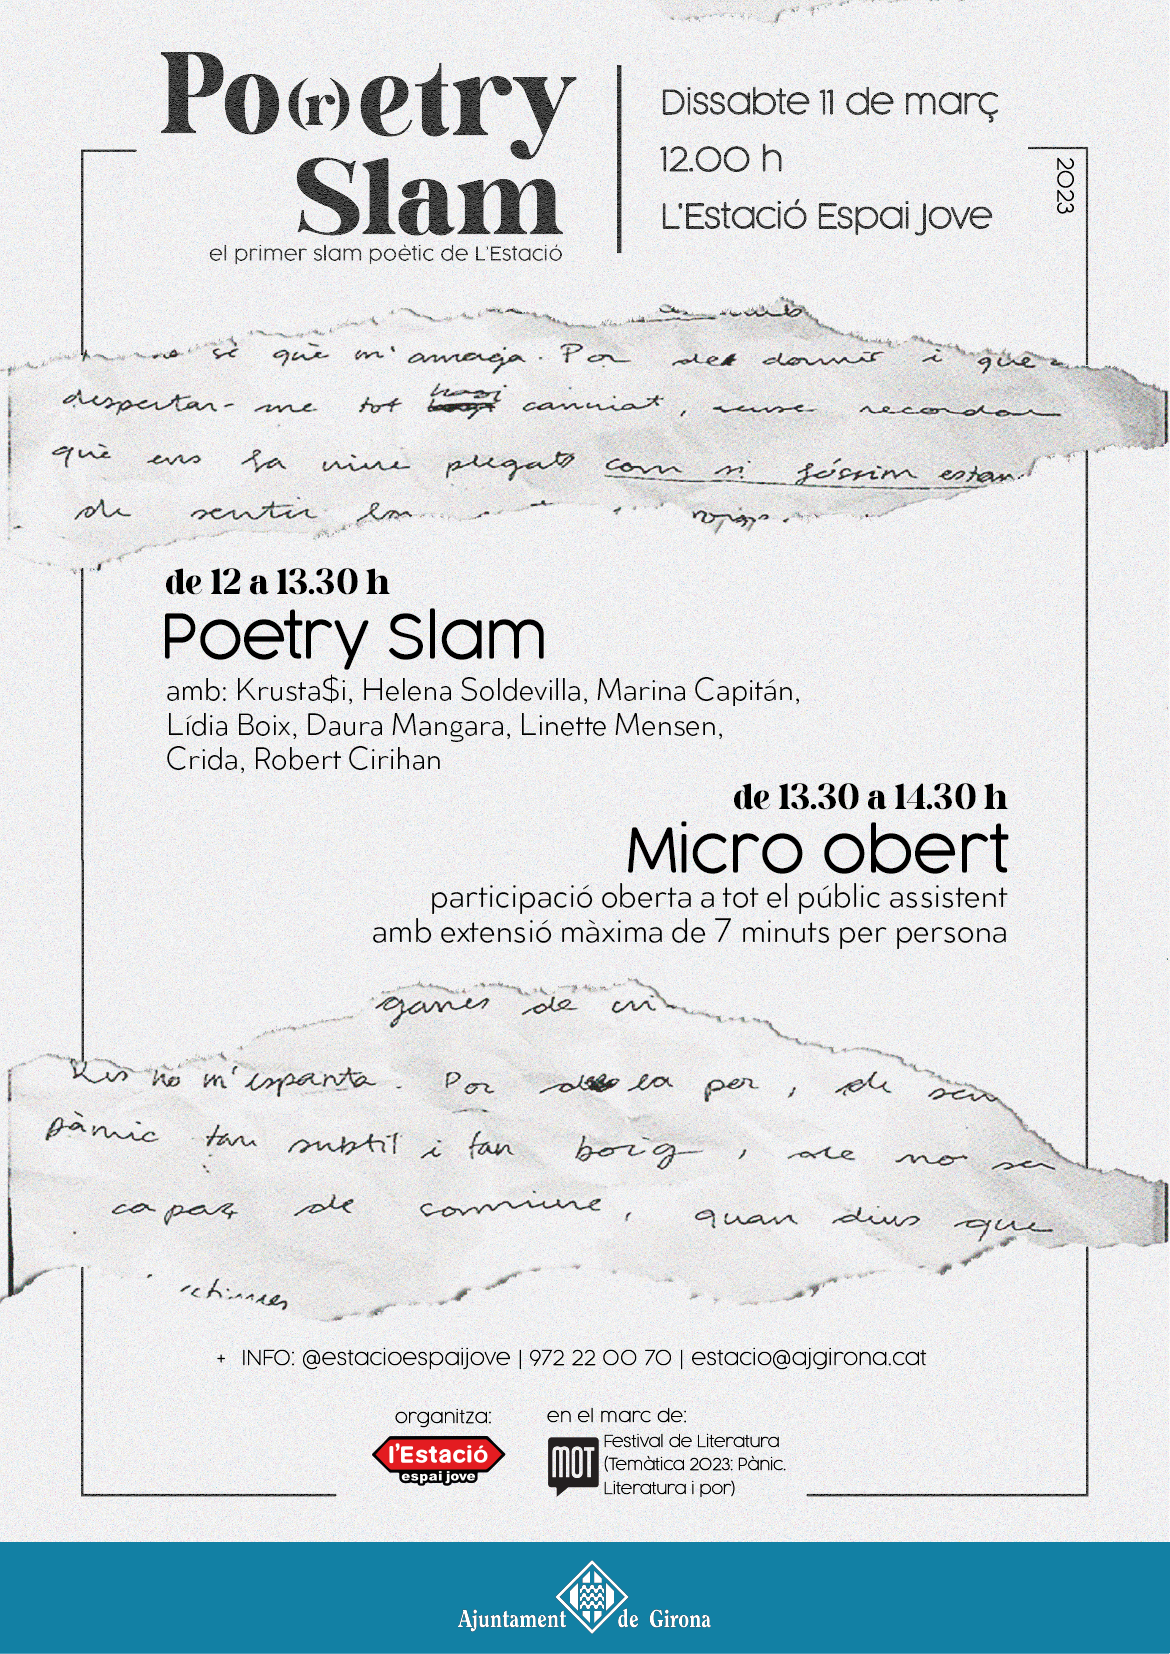 Po(r)etry
Slam
el primer slam poètic de L'Estació
Dissabte 11 de març
12.00 h
L'Estació Espai Jove
2023
amb
sé què m'amaga. Por de dormir i que
despertar-me tot hagi canviat, sense recordar
què ens fa viure plegats com si fóssim estan
de sentir
de 12 a 13.30 h
Poetry Slam
amb: Krusta$i, Helena Soldevilla, Marina Capitán,
Lídia Boix, Daura Mangara, Linette Mensen,
Crida, Robert Cirihan
de 13.30 a 14.30 h
Micro obert
participació oberta a tot el públic assistent
amb extensió màxima de 7 minuts per persona
ganes de
Res no m'espanta. Por de la por, de ser
pànic tan subtil i tan boig, de no ser
capaç de conviure, quan dius que
+ INFO: @estacioespaijove | 972 22 00 70 | estacio@ajgirona.cat
organitza:
l'Estació
espai jove
en el marc de:
MOT
Festival de Literatura
(Temàtica 2023: Pànic.
Literatura i por)
Ajuntament de Girona